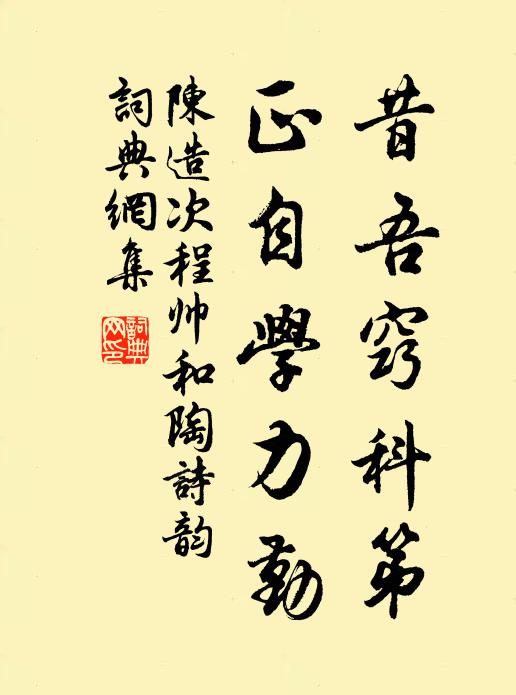 昔吾窃科第
正自學力勤
陳造次程帅和陶詩韵
詞典網集
詞典
网印